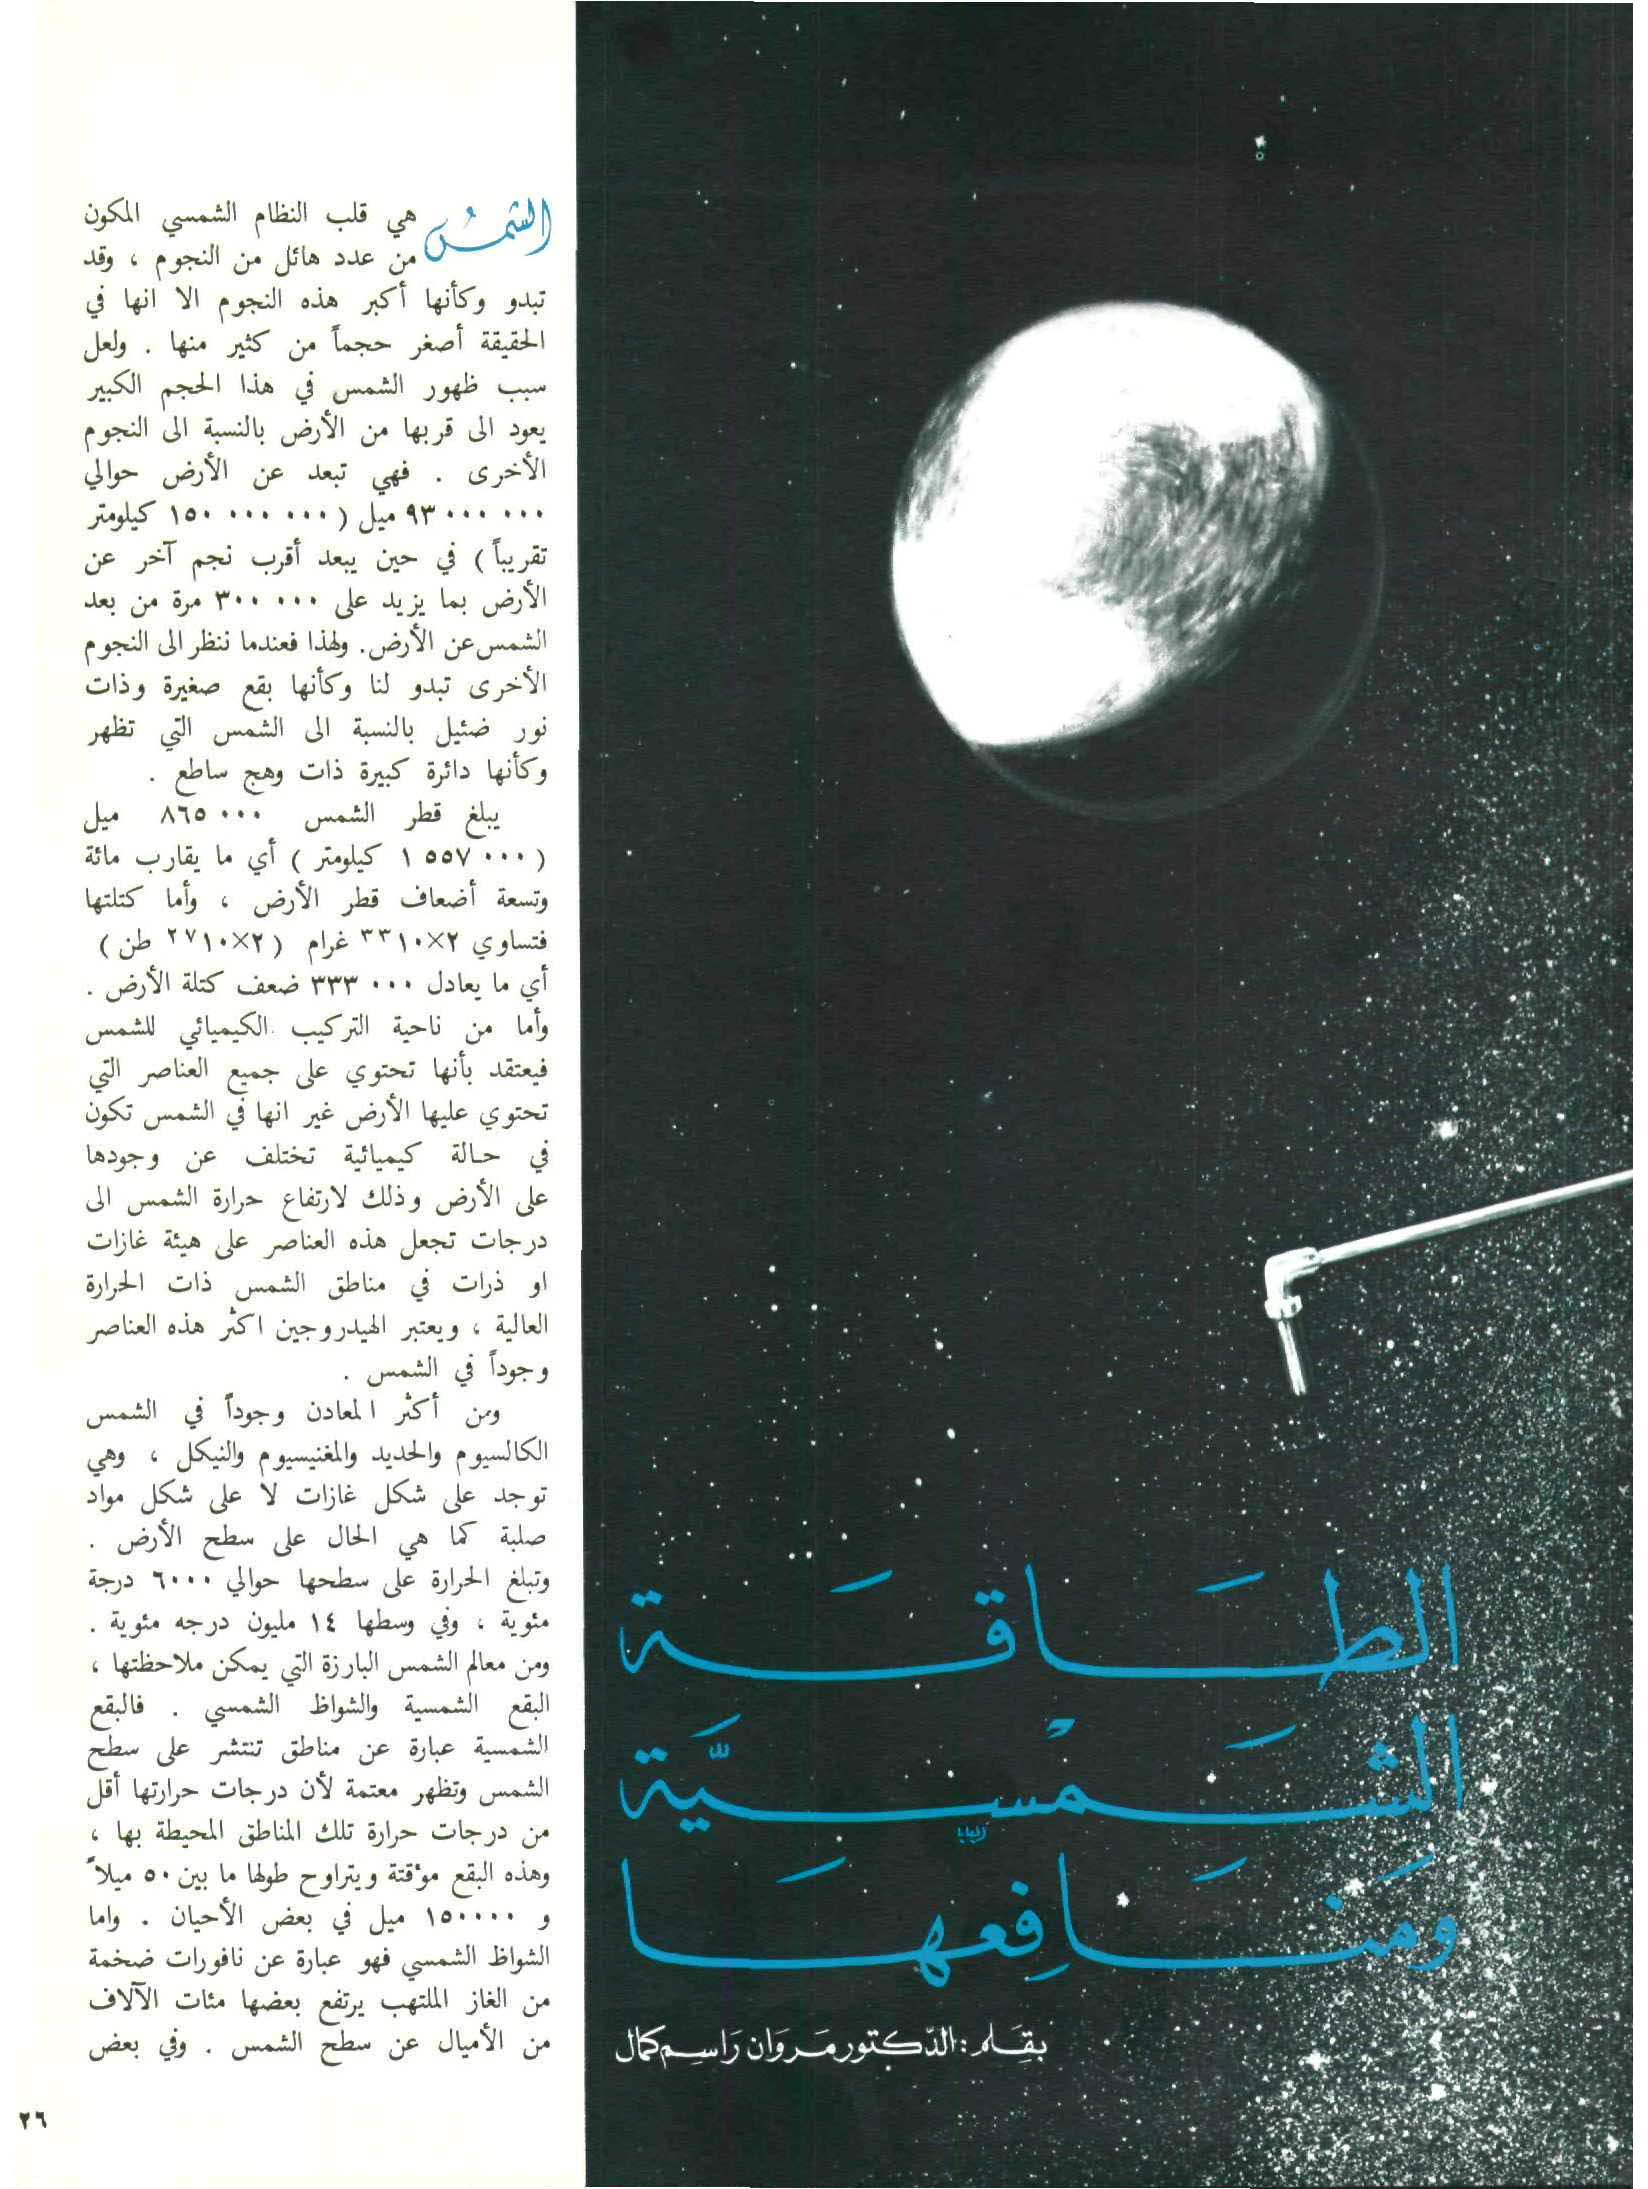 الطَاقَة
الشَمْسيَّة
وَمنَافِعهَا
بقِلم : الدّكتور مَروَان رَاسِم كمال
الشمسُ هي قلب النظام الشمسي المكون
من عدد هائل من النجوم ، وقد
تبدو وكأنها أكبر هذه النجوم الا انها في
الحقيقة أصغر حجماً من كثير منها . ولعل
سبب ظهور الشمس في هذا الحجم الكبير
يعود الى قربها من الأرض بالنسبة الى النجوم
الأخرى . فهي تبعد عن الأرض حوالي
٩٣ ٠٠٠ ٠٠٠ ميل ( ١٥٠ ٠٠٠ ٠٠٠ كيلومتر
تقريباً ) في حين يبعد أقرب نجم آخر عن
الأرض بما يزيد على ٣٠٠ ٠٠٠ مرة من بعد
الشمس عن الأرض. ولهذا فعندما ننظر الى النجوم
الأخرى تبدو لنا وكأنها بقع صغيرة وذات
نور ضئيل بالنسبة الى الشمس التي تظهر
وكأنها دائرة كبيرة ذات وهج ساطع .
يبلغ قطر الشمس ٨٦٥ ٠٠٠ ميل
( ١ ٥٥٧ ٠٠٠ كيلومتر ) أي ما يقارب مائة
وتسعة أضعاف قطر الأرض ، وأما كتلتها
فتساوي ٢×١٠٣٣ غرام ( ٢×١٠٢٧ طن )
أي ما يعادل ٣٣٣ ٠٠٠ ضعف كتلة الأرض .
وأما من ناحية التركيب الكيميائي للشمس
فيعتقد بأنها تحتوي على جميع العناصر التي
تحتوي عليها الأرض غير انها في الشمس تكون
في حالة كيميائية تختلف عن وجودها
على الأرض وذلك لارتفاع حرارة الشمس الى
درجات تجعل هذه العناصر على هيئة غازات
او ذرات في مناطق الشمس ذات الحرارة
العالية ، ويعتبر الهيدروجين اكثر هذه العناصر
وجوداً في الشمس .
ومن أكثر المعادن وجوداً في الشمس
الكالسيوم والحديد والمغنيسيوم والنيكل ، وهي
توجد على شكل غازات لا على شكل مواد
صلبة كما هي الحال على سطح الأرض .
وتبلغ الحرارة على سطحها حوالي ٦٠٠٠ درجة
مئوية ، وفي وسطها ١٤ مليون درجه مئوية .
ومن معالم الشمس البارزة التي يمكن ملاحظتها ،
البقع الشمسية والشواظ الشمسي . فالبقع
الشمسية عبارة عن مناطق تنتشر على سطح
الشمس وتظهر معتمة لأن درجات حرارتها أقل
من درجات حرارة تلك المناطق المحيطة بها ،
وهذه البقع مؤقتة ويتراوح طولها ما بين ٥٠ ميلاً
و ١٥٠٠٠٠ ميل في بعض الأحيان . واما
الشواظ الشمسي فهو عبارة عن نافورات ضخمة
من الغاز الملتهب يرتفع بعضها مئات الآلاف
من الأميال عن سطح الشمس . وفي بعض
٢٦